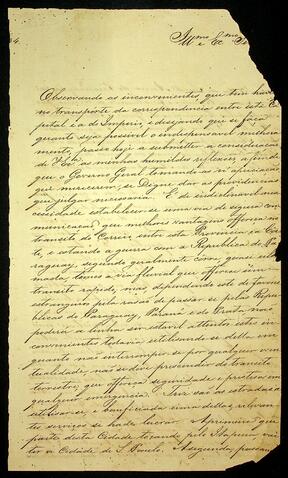 Illmo e Exmo
Observando as inconvenientes que tem havido
no transporte da correspondencia entre esta Ca
pital e a do Imperio, e desejando que se faça
quanto seja possivel o indispensavel melhora
mento, passo hoje a submetter a consideração
de V. Exa as minhas humildes reflexões, a fim de
que o Governo Geral tomando-as n'apreciação
que merecerem, se Digne dar as providencias
que julgar necessaria. E de indeclinavel ne
cessidade estabelecer-se uma via de segura com
municação, que melhores vantagens offereça no
transito do Correio entre esta Provincia e a Cor
te, e estando a guerra com a Republica do Pa
raguay, segundo geralmente consta, quasi
temos a via fluvial que offerece um
transito rapido, mas dependendo este de favores
estrangeiros pela rasão de passar-se pelas Repu
blicas do Paraguay,
poderá a linha ser estavel attentos estes in
convenientes todavia utilisando-se della em
quanto não interromper-se por qualquer even
tualidade, mais se deve prescindir do transito
terrestre, que offereça seguridade e promptidão
qualquer emergencia. Trez são as estradas a
utilisar-se, e beneficiada uma dellas, relevan
tes serviços se hade lucrar. A primeira que
parte desta Cidade tocando pelo Itapura vai
ter a Cidade de S. Paulo. A segunda, passan